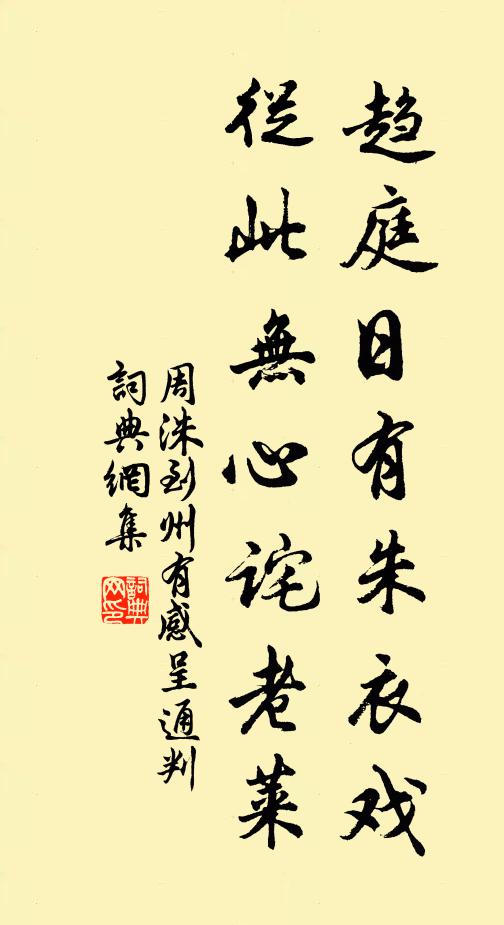 趨庭日有朱衣戏
從此無心詫老萊
周洙到州有感呈通判
詞典網集
詞典網印